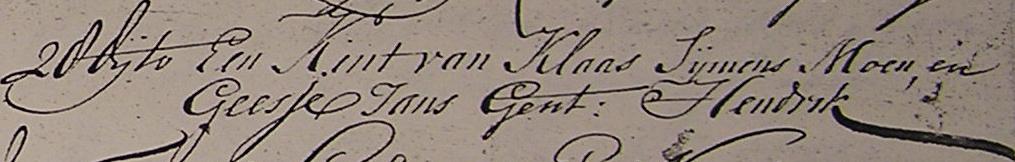 28 Dyto Een Kint van Klaas Sijmens Moen, en
Geesje Jans Gent: Hendrik